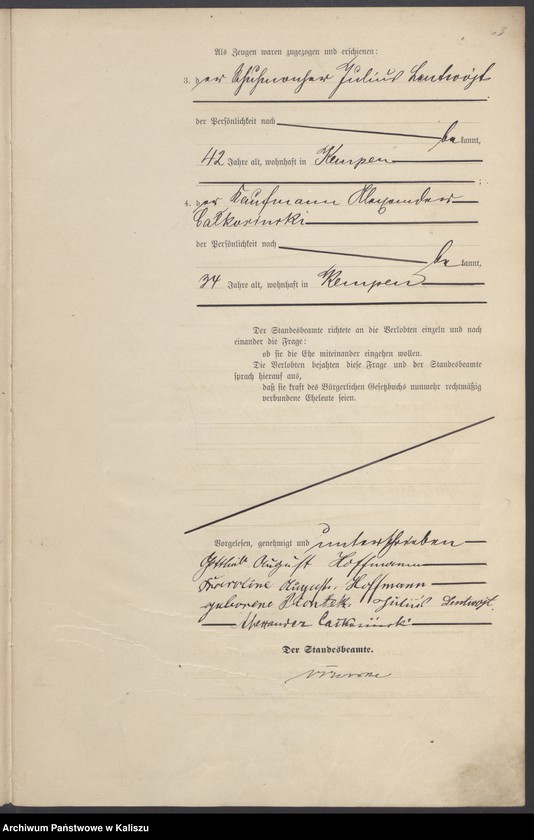 Als Zeugen waren zugezogen und erschienen:
3. der Schuhmacher Julius Lentwojt
der Persönlichkeit nach
be kannt,
42 Jahre alt, wohnhaft in Kempen
4. der Kaufmann Alexander
Calkosinski
der Persönlichkeit nach
be kannt,
34 Jahre alt, wohnhaft in Kempen
Der Standesbeamte richtete an die Verlobten einzeln und nach
einander die Frage:
ob sie die Ehe miteinander eingehen wollen.
Die Verlobten bejahten diese Frage und der Standesbeamte
sprach hierauf aus,
daß sie kraft des Bürgerlichen Gesetzbuchs nunmehr rechtmäßig
verbundene Eheleute seien.
Vorgelesen, genehmigt und unterschrieben
August Hoffmann
Karoline Auguste Hoffmann
geborene Piontek Julius Lentwojt
Alexander
Der Standesbeamte.
Archiwum Państwowe w Kaliszu